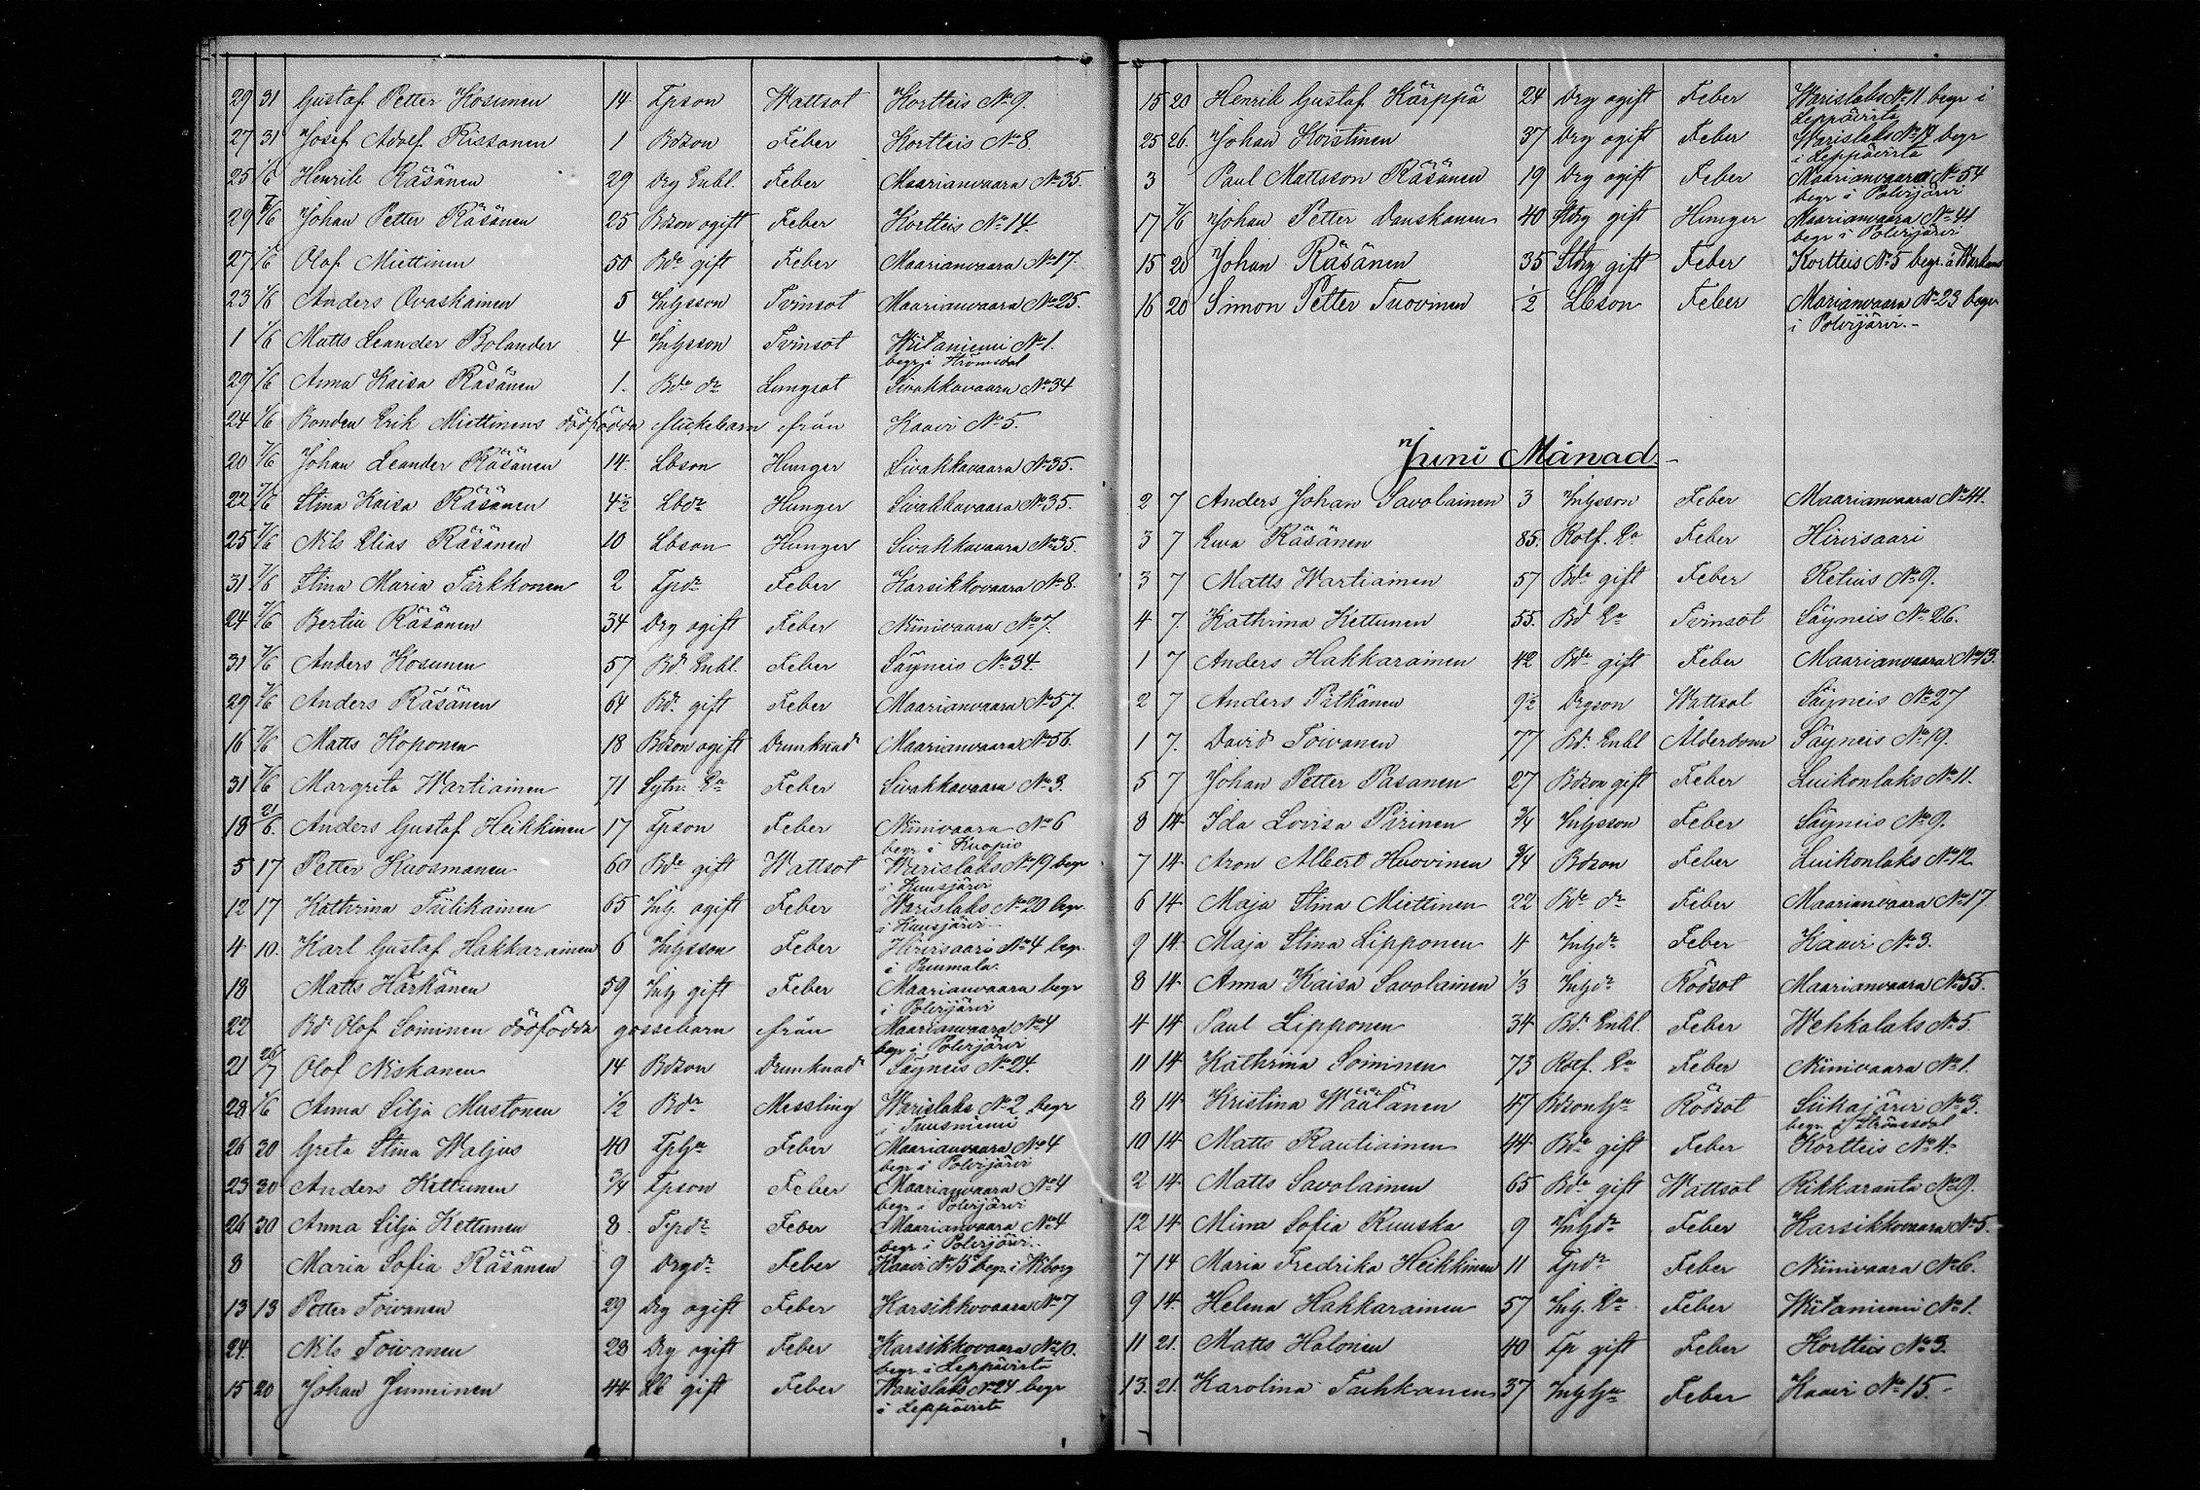 29 31 Gustaf Petter Kosunen 14 Tpson Wattsot Kortteis No 9.
27 31 Josef Adolf Rissanen 1 Bdson Feber Kortteis No 8.
25 1/6 Henrik Räsänen 29 Drg Enkl. Feber Maarianvaara No 35.
29 1/6 Johan Petter Räsänen 25 Bdson ogift Feber Kortteis No 14.
27 1/6 Olof Miettinen 50 Bde gift Feber Maarianvaara No 17.
23 1/6 Anders Ovaskainen 5 Inhysson Tvinsot Maarianvaara No 25.
1 1/6 Matts Leander Bolander 4 Inhysson Tvinsot Wiitaniemi No 1.
begr. i Strömsdal
29 1/6 Anna Kaisa Räsänen 1. Bde dr Lungsot Sivakkavaara No 34
24 1/6 Bonden Erik Miettinens dödfödda flickebarn från Kaavi No 5.
20 7/6 Johan Leander Räsänen 14. Lbson Hunger Sivakkavaara No 35.
22 7/6 Stina Kaisa Räsänen 4½ Lbdr Hunger Sivakkavaara No 35.
25 7/6 Nils Elias Räsänen 10 Lbson Hunger Sivakkavaara No 35.
31 7/6 Stina Maria Tirkkonen 2 Tpdr Feber Karsikkovaara No 8.
24 7/6 Bertil Räsänen 34 Drg ogift Feber Niinivaara No 7.
31 7/6 Anders Kosunen 57 Bd. Enkl. Feber Säyneis No 34.
29 7/6 Anders Räsänen 64 Bd. gift Feber Maarianvaara No 57.
16 7/6 Matts Koponen 18 Bdson ogift Drunknad Maarianvaara No 56.
31 7/6 Margreta Wartiainen 71 Sytn. Ea Feber Sivakkavaara No 3.
18 21/6. Anders Gustaf Heikkinen 17 Tpson Feber Niinivaara No 6
begr i Kuopio
5 17 Petter Kuosmanen 60 Bde gift Wattsot Warislaks No 19 begr
i Kuusjärvi
12 17 Kathrina Tiilikainen 65 Inh. ogift Feber Warislaks No 20 begr.
i Kuusjärvi
4 10. Karl Gustaf Hakkarainen 6 Inhysson Feber Hirvisaari No 4 begr.
i Pummala.
18 Matts Härkänen 59 Inh gift Feber Maarianvaara begr
i Polvijärvi
22 Bd Olof Soininen dödfödda gossebarn från Maarianvaara No 4
begr i Polvijärvi
21 26/7 Olof Niskanen 14 Bdson Drunknad Säyneis No 24.
28 1/6 Anna Silja Mustonen ½ Bdr Messling Warislaks No 2 begr
i Tuusniemi
26 30 Greta Stina Waljus 40 Tphu Feber Maarianvaara No 4
begr i Polvijärvi
23 30 Anders Kettunen ¾ Tpson Feber Maarianvaara No 4
begr i Polvijärvi
26 30 Anna Silja Kettunen 8. Tpdr Feber Maarianvaara No 4
begr i Polvijärvi.
8 Maria Sofia Räsänen 9 Drgdr Feber Kaavi No 15 begr. i Wiborg
13 13 Petter Toivanen 29 Drg ogift Feber Karsikkovaara No 7
24. Nils Toivanen 23 Drg ogift Feber Karsikkovaara No 10.
begr i Leppävirta
15 20 Johan Junninen 44 Lb gift Feber Warislaks No 24 begr
i Leppävirta
15 20 Henrik Gustaf Kärppä 24 Drg ogift Feber Warislaks No 11 begr i
Leppävirta
25 26. Johan Koistinen 37 Drg ogift Feber Warislaks No 19 begr
i Leppävirta
3 Paul Mattsson Räsänen 19 Drg ogift Feber Maarianvaara No 54
begr i Polvijärvi
17 7/6 Johan Petter Danskanen 40 Stdrg gift Hunger Maarianvaara No 41
begr i Polvijärvi
15 20 Johan Räsänen 35 Stdrg gift Feber Kortteis No 5 begr. i Warkaus
16 20 Simon Petter Tuovinen ½ Lbson Feber Marianvaara No 23 begr
i Polvijärvi.
Juni Månad.
2 7 Anders Johan Savolainen 3 Inhysson Feber Maarianvaara No 41.
3 7 Ewa Räsänen 85. Rotf. Ea Feber Hirvisaari
3 7 Matts Wartiainen 57 Bde gift Feber Retius No 9.
4 7. Kathrina Kettunen 55. Bd Ea Tvinsot Säyneis No 26.
1 7 Anders Hakkarainen 42 Bde gift Feber Maarianvaara No 13.
2 7 Anders Pitkänen 9½ Drgson Wattsot Säyneis No 27
1 7. David Toivanen 77 Bd. Enkl Ålderdom Säyneis No 19.
5 7 Johan Petter Pasanen 27 Bdson gift Feber Luikonlaks No 11.
8 14. Ida Lovisa Piirinen ¾ Inhysson Feber Säyneis No 9.
7 14. Aron Albert Huovinen ¾ Bdson Feber Luikonlaks No 12.
6 14. Maja Stina Miettinen 22 Bde dr Feber Maarianvaara No 17
9 14. Maja Stina Lipponen 4 Inhdr Feber Kaavi No 3.
8 14. Anna Kaisa Savolainen ⅓ Inhdr Rödsot Maarianvaara No 55.
4 14 Paul Lipponen 34 Bd. Enkl. Feber Wehkalaks No 5.
11 14. Kathrina Soininen 73 Rotf. Ea Feber Niinivaara No 1.
8 14. Kristina Wäätänen 47 Bdsonhu Rödsot Siikajärvi No 3.
begr. i Strömsdal
10 14. Matts Rautiainen 44. Bde gift Feber Kortteis No 4.
2 14. Matts Savolainen 65 Bde gift Wattsot Rikkaranta No 9.
12 14. Mina Sofia Ruuska 9 Inhdr Feber Karsikkovaara No 5.
7 14 Maria Fredrika Heikkinen 11 Tpdr Feber Niinivaara No 6.
9 14. Helena Hakkarainen 57 Inh. Ea Feber Wiitaniemi No 1.
11 21. Matts Halonen 40 Tp gift Feber Kortteis No 3.
13. 21. Karolina Tahkanen 37 Inhhu Feber Kaavi No 15.